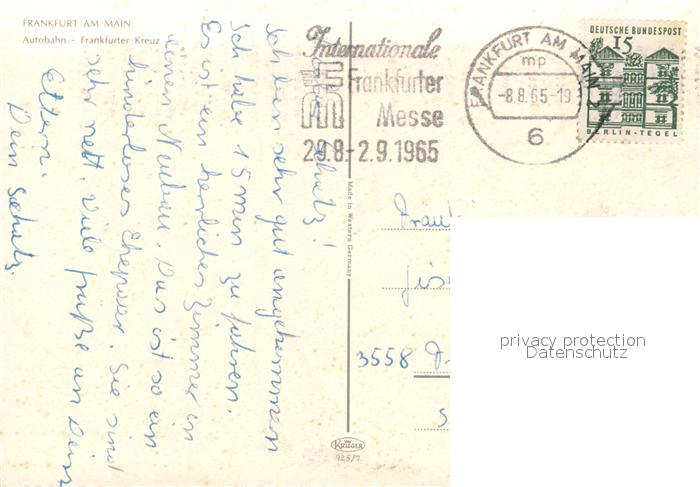 FRANKFURT AM MAIN
Autobahn - Frankfurter Kreuz
Internationale
Frankfurter
Messe
29.8.-2.9.1965
FRANKFURT AM MAIN
mp
-8.8.65-19
6
DEUTSCHE BUNDESPOST
15
BERLIN-TEGEL
Schatz!
Ich bin sehr gut angekommen
Ich habe 15 min zu fahren.
Es ist ein herrliches Zimmer in
einen Neubau. Das ist so ein
kinderloses Ehepaar. Sie sind
sehr nett. Viele Grüße an Deine
Eltern.
Dein Schatz.
Made in Western Germany
KRÜGER
925/7
3558
privacy protection
Datenschutz